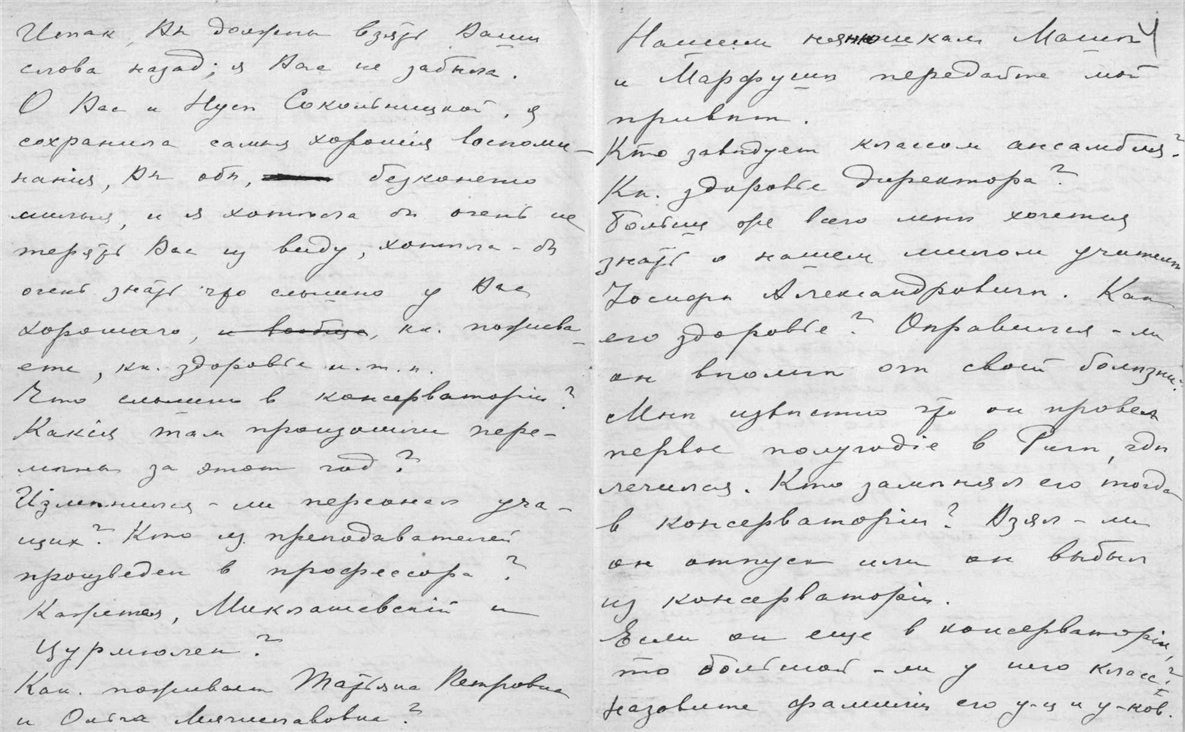 Итак, Вы должны взять Ваши
слова назад; я Вас не забыла.
О Вас и Нусѣ Сокольницкой, я
сохранила самыя хорошія воспоми-
нанія, Вы обѣ, безконечно
милыя, и я хотѣла бы очень не
терять Вас из виду, хотѣла-бы
очень знать что слышно у Вас
хорошаго, и вообще, кк. пожива-
ете, кк. здоровье и.т.п.
Что слышно в консерваторіи?
Какія там произошли пере-
мѣны за этот год?
Измѣнился-ли персонал уча-
щих? Кто из преподавателей
произведен в профессора?
Миклашевскій и
Цурмюлен?
Как. поживает Татьяна Петровна
и Ольга Мячиславовна?
Нашим нянюшкам Машѣ 4
и Марфушѣ передайте мой
привѣт.
Кто завѣдует классом ансамбля?
Кк. здоровье директора?
Больше же всего мнѣ хочется
знать о нашем милом учителѣ
Іосифѣ Александровичѣ. Как
его здоровье? Оправился-ли
он вполнѣ от своей болѣзни.
Мнѣ извѣстно что он провел
первое полугодіе в Ригѣ, гдѣ
лечился. Кто замѣнял его тогда
в консерваторіи? Взял-ли
он отпуск или он выбыл
из консерваторіи.
Если он еще в консерваторіи,
то большой-ли у него класс? и
назовите фамиліи его у-ц и у-ков.